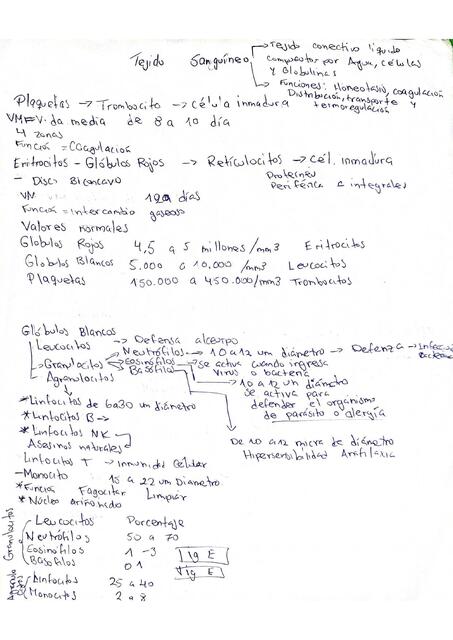 Tejido Sanguíneo
→ Tejido conectivo líquido
compuestor por Agua, células
y Globulinas
→ Funciones: Homeostasis, coagulación
Distribución, transporte y
termoregulación
Plaquetas → Trombocito → célula inmadura
VM = V. da media de 8 a 10 día
4 zonas
Función = Coagulación
Eritrocitos - Glóbulos Rojos → Retículocitos → Cél. inmadura
- Disco Biconcavo
Proteínas
Periférica e integrales
VM 120 días
Función = intercambio gaseoso
Valores normales
Globulos Rojos 4,5 a 5 millones/mm3 Eritrocitos
Globulos Blancos 5.000 a 10.000/mm3 Leucocitos
Plaquetas 150.000 a 450.000/mm3 Trombocitos
Glóbulos Blancos
Leucocitos → Defensa al cuerpo
Granulocitos
Neutrófilos → 10 a 12 um diámetro → Defenza →
Eosinófilos → se activa cuando ingresa
virus o bacteria
Basófilos
Agranulocitos
→ 10 a 12 un diámetro
se activa para
defender el organismo
de parásito o alergía
* Linfocitos de 6 a 30 um diámetro
* Linfocitos B →
* Linfocitos NK
Asesinos naturales
De 10 a 12 micra de diámetro
Hipersensibilidad Anafilaxia
Linfocitos T → inmunidad Celular
- Monocito 15 a 22 um Diametro
* Función Fagocitar Limpiar
* Núcleo Ariñonado
Granulocitos
Leucocitos Porcentaje
Neutrófilos 50 a 70
Eosinófilos 1 - 3 Ig E
Basófilos 0 1 Ig E
Linfocitos 25 a 40
Monocitos 2 a 8